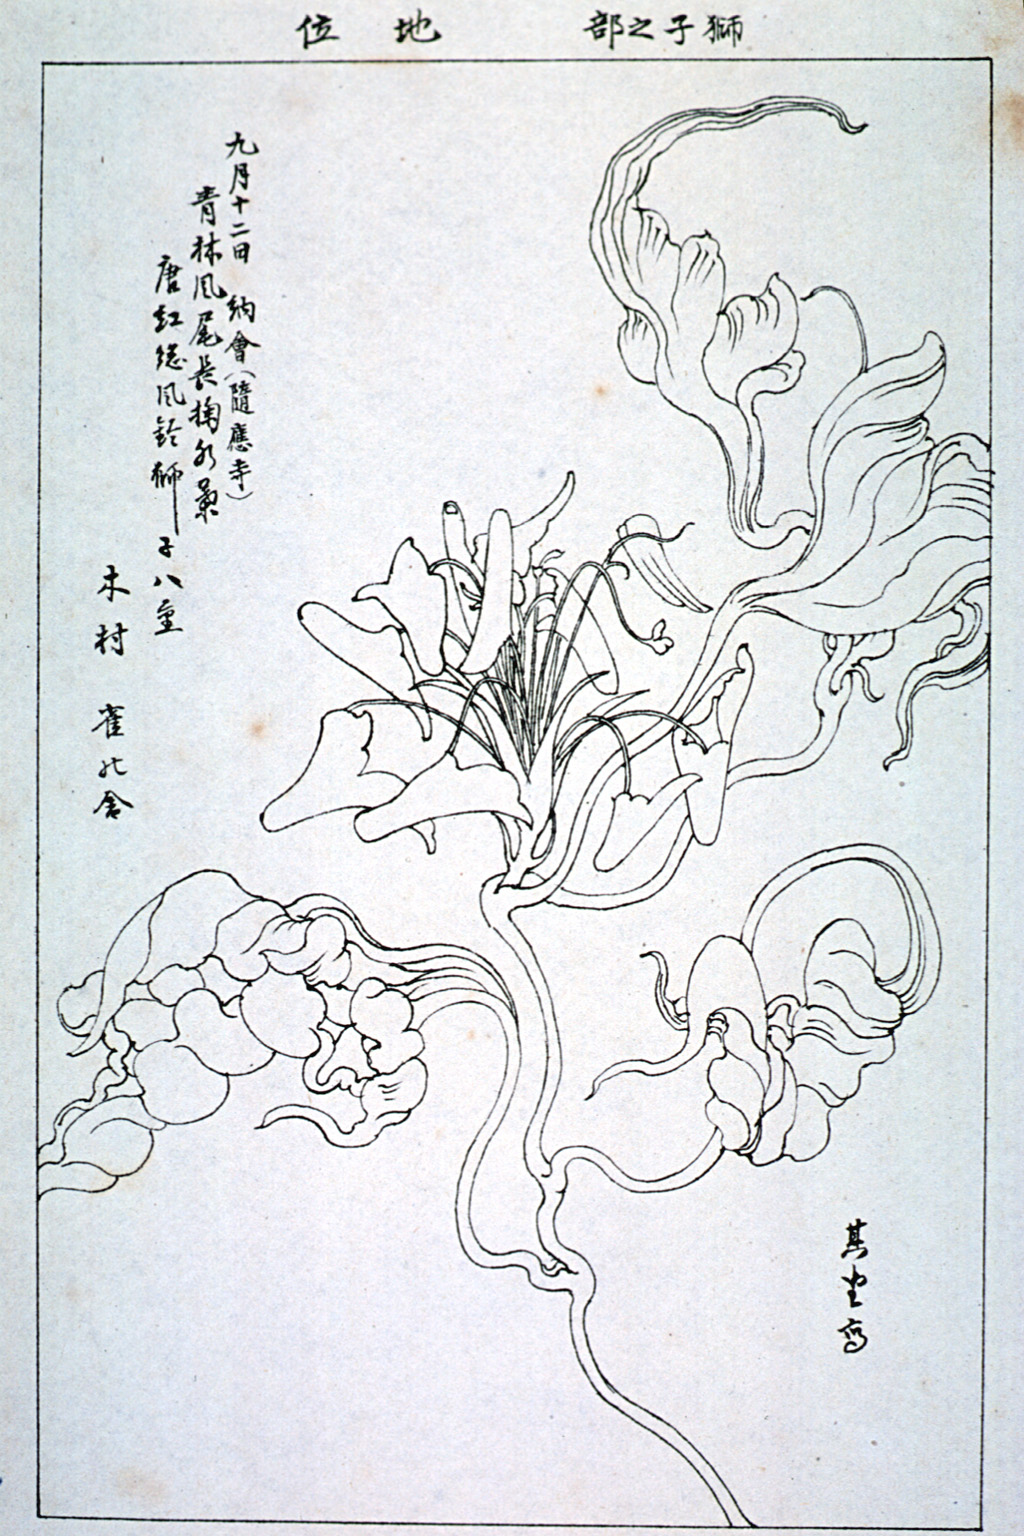 獅子之部 地位
九月十二日 納會(隨應寺)
青抹風尾長掬水葉
唐紅總風鈴獅子八重
木村 雀舎
写